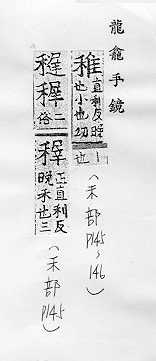 龍龕手鏡
稚直利反晚
也小也幼
也｜
（禾部
P145～
146）
稺稺二
俗
稺正直利反
晚禾也三
（禾部
P145）